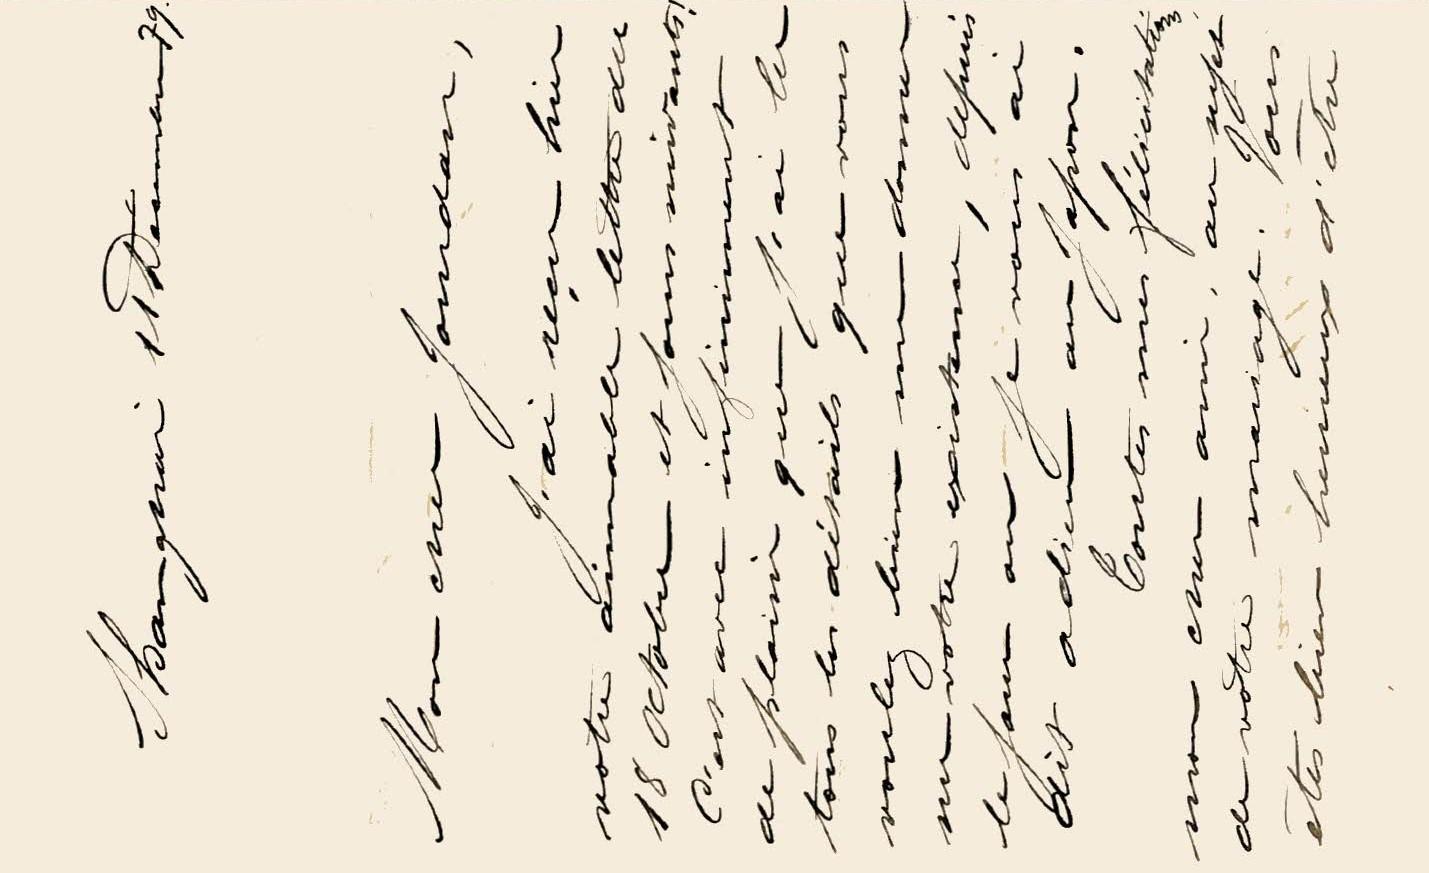 Shanghai 11 Décembre 79.
Mon cher Jourdan,
J'ai reçu hier
votre aimable lettre du
18 Octobre et jours suivants!
C'est avec infiniment
de plaisir que j'ai lu
tous les détails que vous
voulez bien me donner
sur votre existence, depuis
le jour où je vous ai
dit adieu au Japon.
Toutes mes félicitations,
mon cher ami, au sujet
de votre mariage. Vous
êtes bien heureux d'être